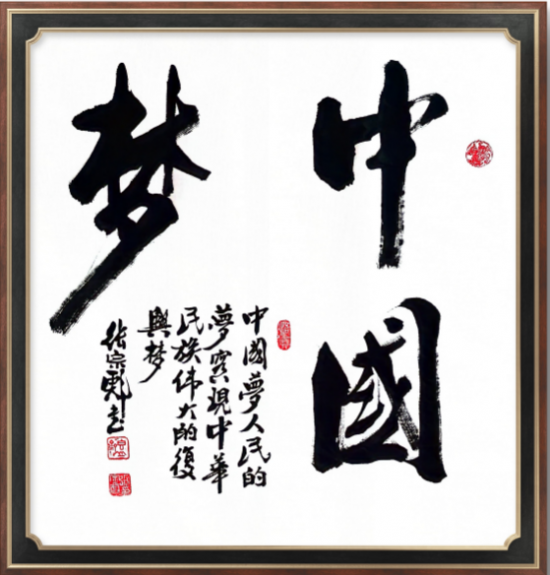 中國
梦
中國夢人民的
夢實現中華
民族伟大的復
興梦